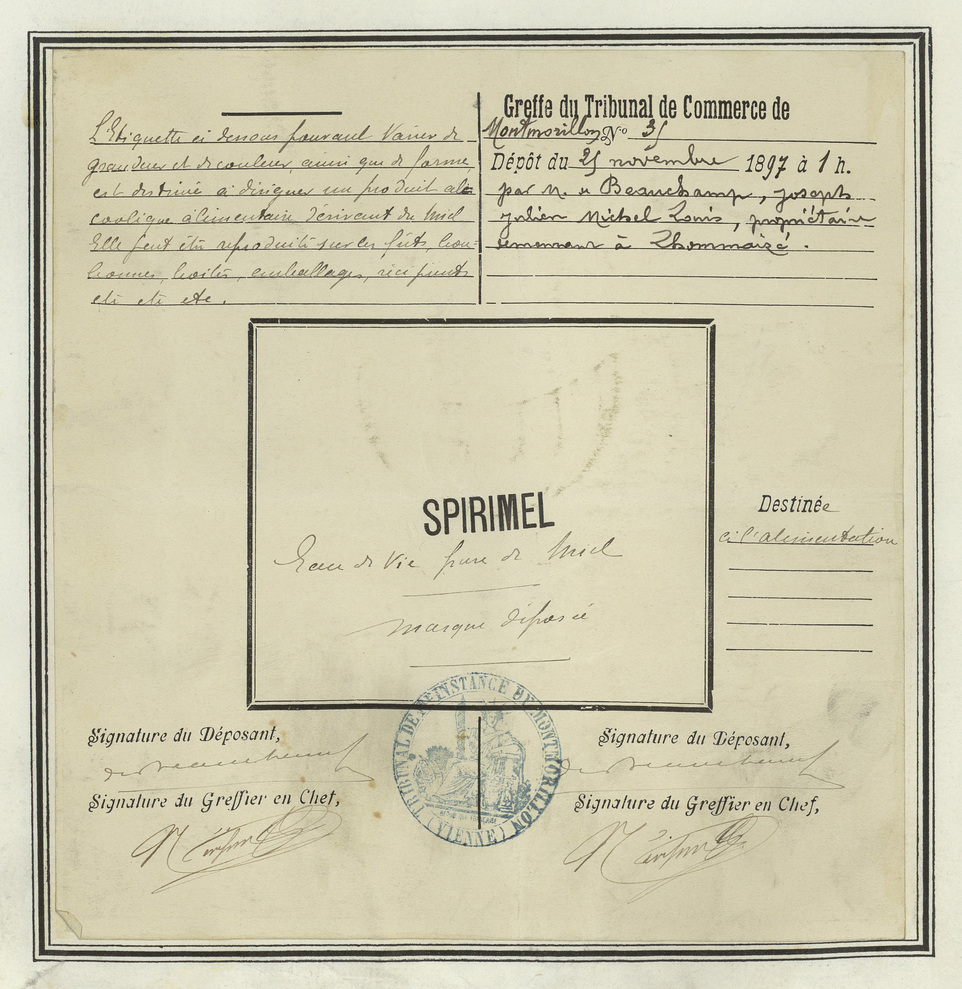 L'Etiquette ci dessous pouvant varier de
grandeur et de couleur, ainsi que de forme
est destinée à diriger un produit al-
coolique alimentaire dérivant du Miel
Elle peut être reproduite sur les fûts, bon-
bonnes, boites, emballages, récipients
etc etc etc.
Greffe du Tribunal de Commerce de
Montmorillon N° 35
Dépôt du 25 novembre 1897 à 1 h.
par M. de Beauchamp, Joseph
Julien Michel Louis, propriétaire
demeurant à Lhommaizé.
SPIRIMEL
Eau de Vie pure de Miel
marque déposée
Destinée
à l'alimentation
TRIBUNAL DE 1RE INSTANCE DE MONTMORILLON
(VIENNE)
Signature du Déposant,
de Beauchamp
Signature du Greffier en Chef,
Signature du Déposant,
de Beauchamp
Signature du Greffier en Chef,